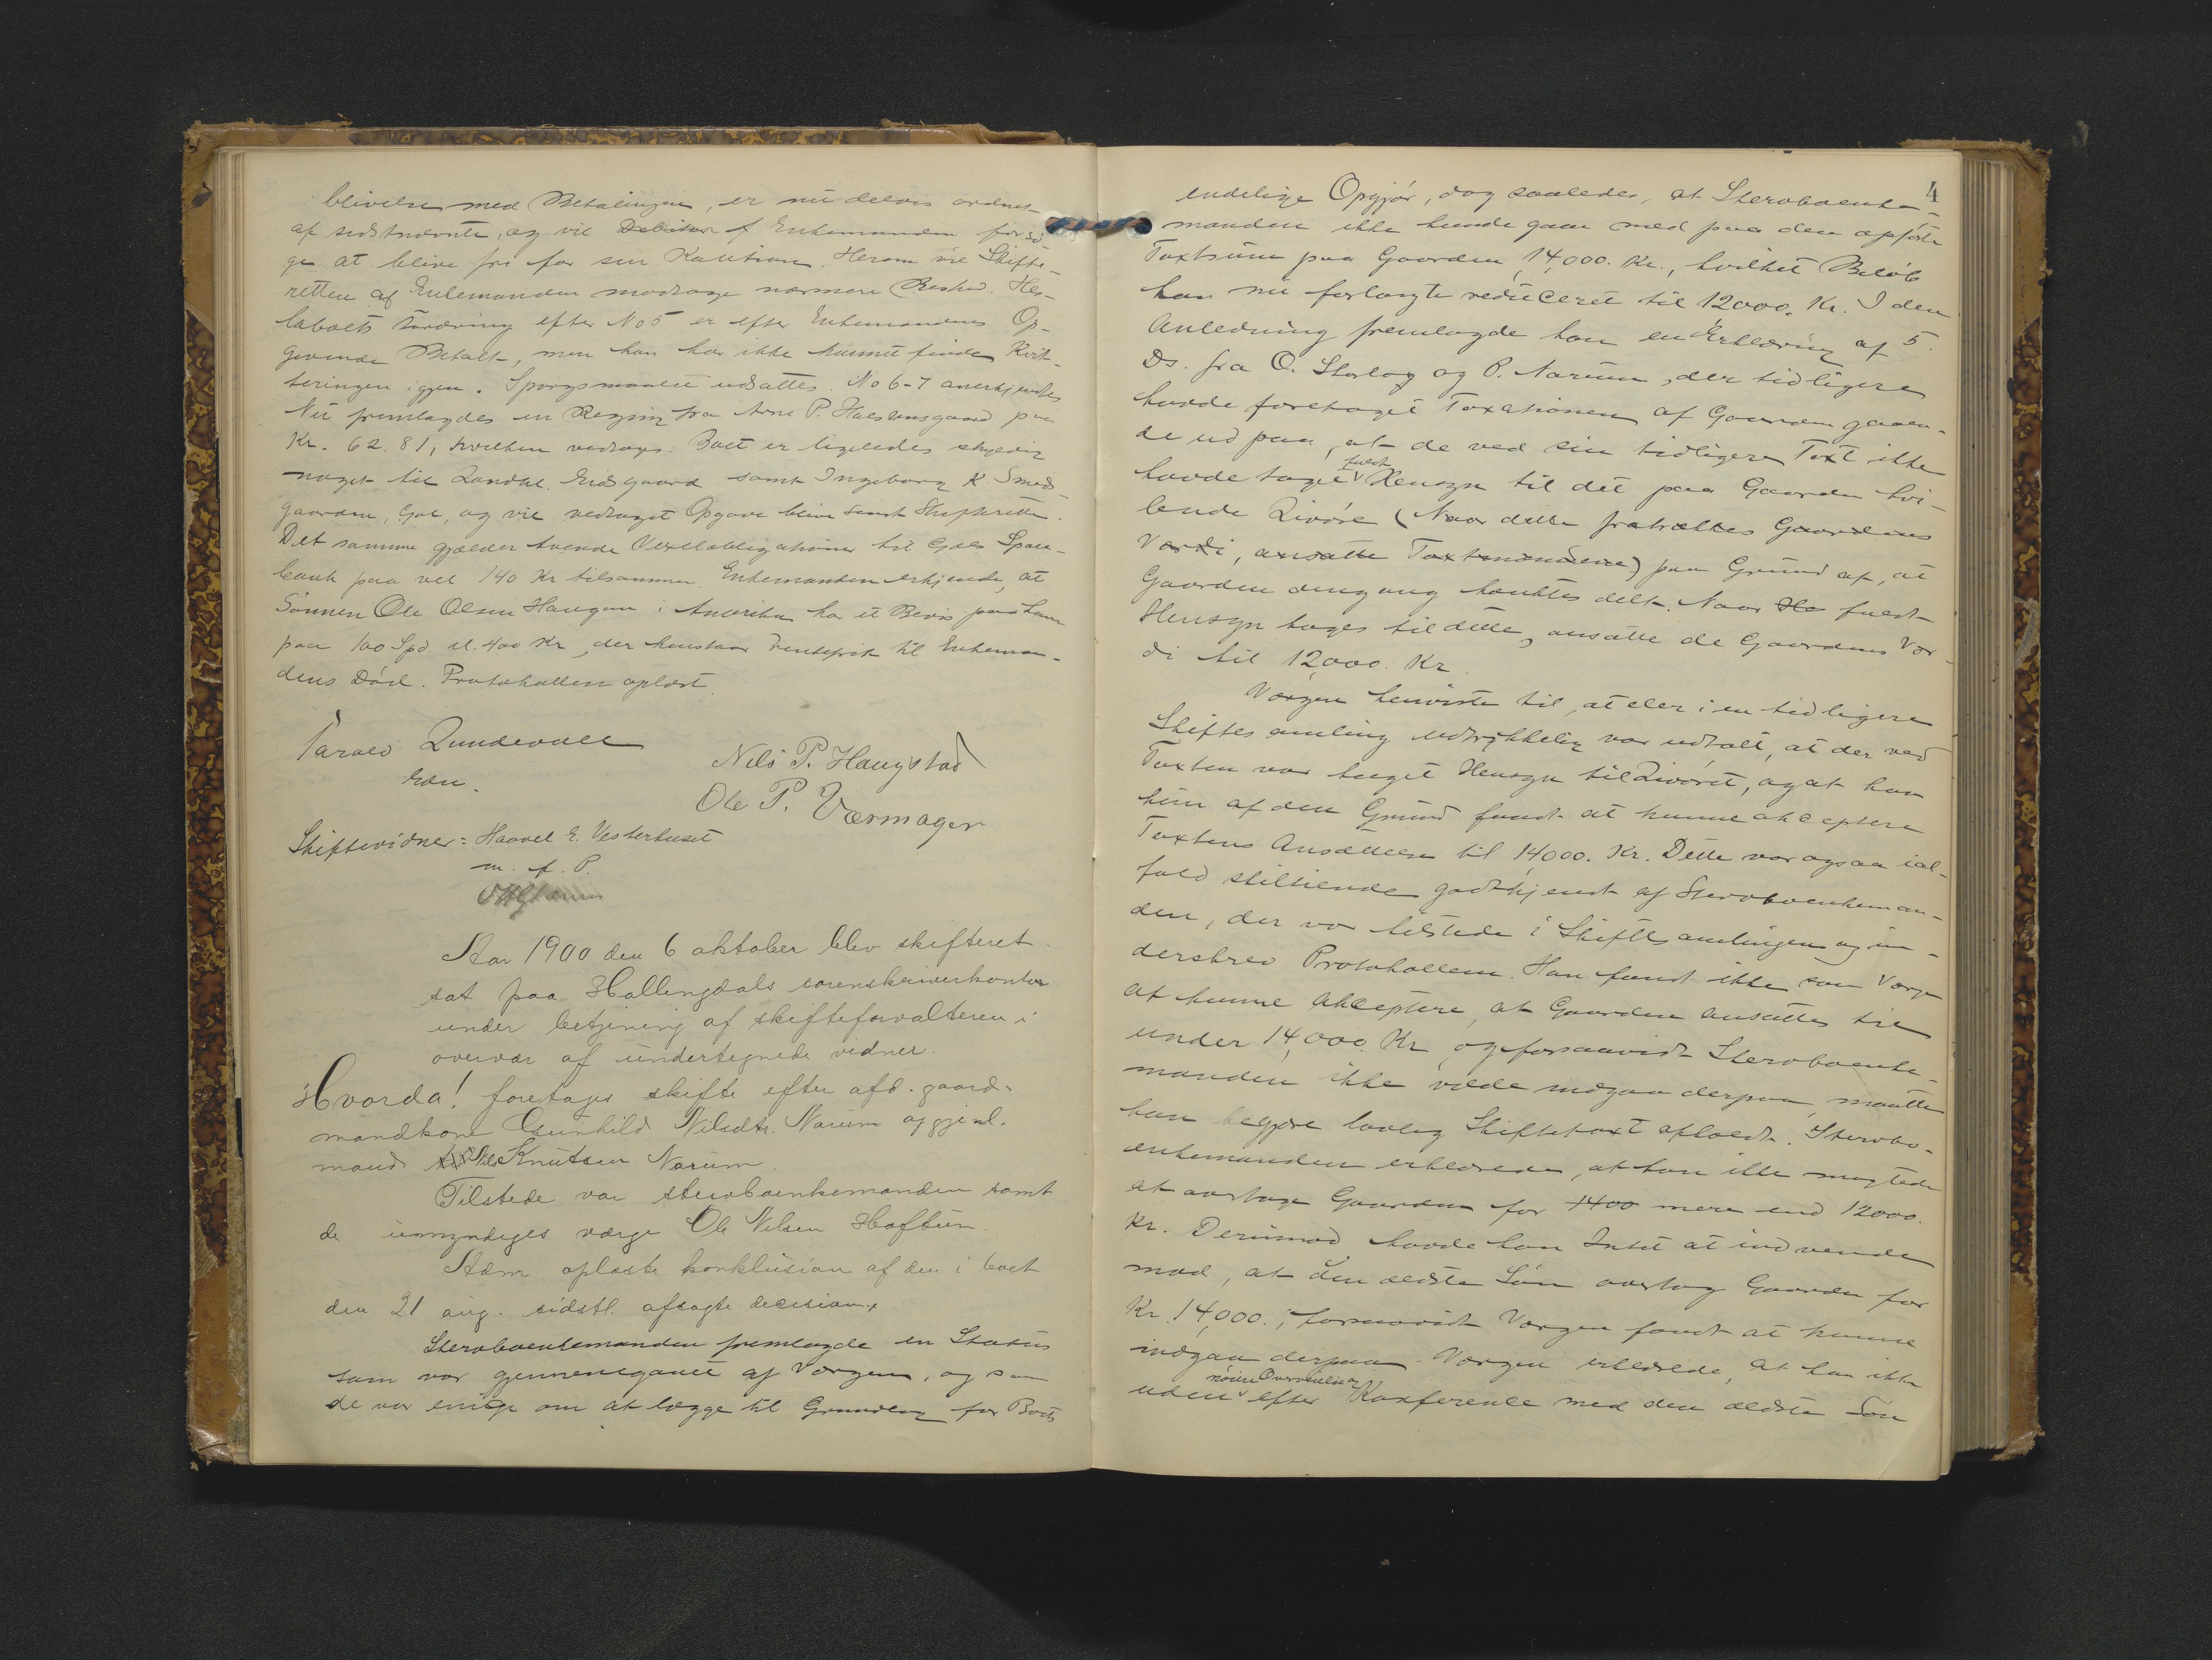 blivelse med Betalingen, er nu delvis ordnet
af sidstnævnte, og vil Debitor f Enkemanden forsø-
ge at blive fri for sin Kaution. Herom vil Skifte-
retten af Enkemanden modtage nærmere Besked. Hes-
labaets Fordring efter No 5 er efter Enkemandens Op-
givende Betalt, men han har ikke kunnet finde Kvit-
teringen igjen. Spørgsmaalet udsattes. No 6-7 anerkjendtes
Nu fremlagdes en Regning fra Arne P. Halstensgaard paa
Kr. 62.81, hvilken vedtoges. Boet er ligeledes skyldig
noget til Landhl. Eidsgaard samt Ingeborg K Smeds-
gaarden, Gol, og vil vedtaget Opgave blive sendt Skifteretten.
Det samme gjælder tvende Vexelobligationer til Gols Spare-
bank paa vel 140 Kr tilsammen. Enkemanden erkjende, at
Sønnen Ole Olsen Haugen i Amerika har et Bevis paa ham
paa 100 Spd el. 400 Kr, der henstaar rentefrit til Enkeman-
dens Død. Protokollen oplæst.
Tarald Lundevall
kon.
Nils P. Haugstad
Ole P. Værmager
Skiftevidner: Haavel E. Vesterhuset
m. f. P.
Aar 1900 den 6 oktober blev skifteret
sat paa Hallingdals sorenskriverkontor
under betjening af skifteforvalteren i
overvær af undertegnede vidner.
Hvorda! foretages skifte efter afd. gaard-
mandkone Gunhild Nilsdtr. Narum og gjenl.
mand Nils Knutsen Narum
Tilstede var stervboenkemanden samt
de umyndiges værge Ole Nilsen Hoftun.
Adm oplæste konklusion af den i boet
den 21 aug. sidstl. afsagte decision.
Stervboenkemanden fremlagde en Status
som var gjennemgaaet af Værgen, og som
de var enige om at lægge til Grundlag for Boets
4
endelige Opgjør, dog saaledes, at Stervboenke-
manden ikke kunde gaa med paa den opførte
Taxtsum paa Gaarden 14,000. Kr., hvilket Beløb
han nu forlangte reduceret til 12000. Kr. I den
Anledning fremlagde han en Erklæring af 5.
Ds. fra O. Storlog og P. Narum, der tidligere
havde foretaget Taxationen af Gaarden gaaen-
de ud paa, at de ved sin tidligere Taxt ikke
fuldt
havde taget Hensyn til det paa Gaarden hvi-
lende Livøre (Naar dette fratrættes Gaardens
Værdi, ansatte Taxtmændene) paa Grund af, at
Gaarden dengang tænktes delt. Naar Ho fuldt
Hensyn tages til dette, ansatte de Gaardens Vær-
di til 12,000. Kr
Værgen henviste til, at der i en tidligere
Skiftesamling udtrykkelig var udtalt, at der ved
Taxten var taget Hensyn til Livøret, og at han
kun af den Grund fandt at kunne akceptere
Taxtens Ansættelse til 14,000. Kr. Dette var ogsaa ial-
fald stiltiende godkjendt af Stervboenkeman-
den, der var tilstede i Skiftesamlingen og un-
derskrev Protokollen. Han fandt ikke som Værge
at kunne akceptere, at Gaarden ansættes til
under 14,000 Kr, og forsaavidt Stervboenke-
manden ikke vilde indgaa derpaa, maatte
han begjære lovlig Skiftetaxt afholdt. Stervbo-
enkemanden erklærede, at han ikke magtede
at overtage Gaarden for 1400 mere end 12000.
Kr. Derimod havde han Intet at indvende
mod, at den ældste Søn overtog Gaarden for
Kr. 14,000., forsaavidt Værgen fandt at kunne
indgaa derpaa. Værgen erklærede, at han ikke
nøiere Overveielse og
uden efter Konferenle med den ældste Søn